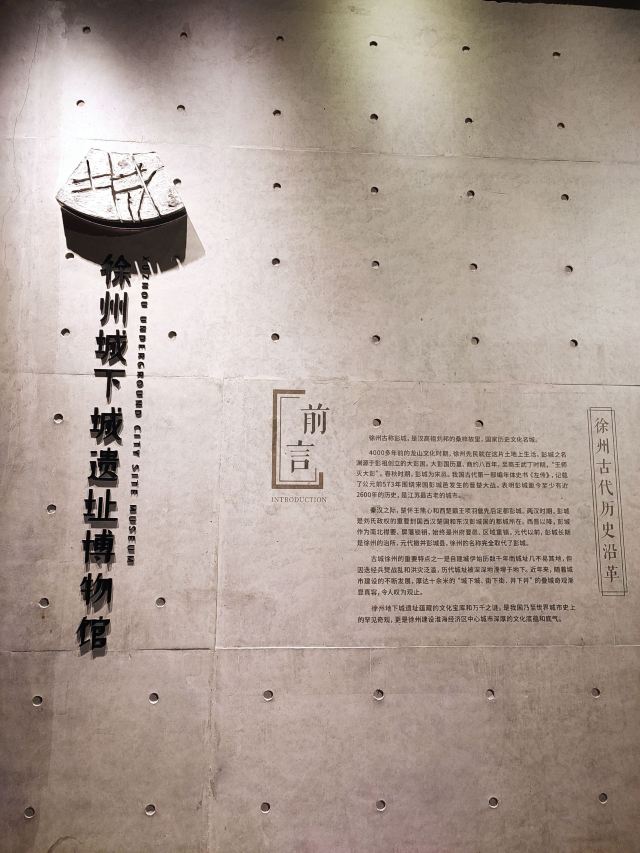 徐州城下城遗址博物馆
XUZHOU UNDERGROUND CITY SITE MUSEUM
前言
INTRODUCTION
徐州古称彭城，是汉高祖刘邦的桑梓故里，国家历史文化名城。
4000多年前的龙山文化时期，徐州先民就在这片土地上生活，彭城之名
渊源于彭祖创立的大彭国。大彭国历夏、商约八百年，至商王武丁时期，“王师
灭大彭”。春秋时期，彭城为宋邑。我国古代第一部编年体史书《左传》，记载
了公元前573年围绕宋国彭城邑发生的晋楚大战。表明彭城距今至少有近
2600年的历史，是江苏最古老的城市。
秦汉之际，楚怀王熊心和西楚霸王项羽曾先后定都彭城。两汉时期，彭城
是刘氏政权的重要封国西汉楚国和东汉彭城国的都城所在。西晋以降，彭城
作为南北襟要、屏藩锁钥，始终是州府要邑、区域重镇。元代以前，彭城长期
是徐州的治所，元代撤并彭城县，徐州的名称完全取代了彭城。
古城徐州的重要特点之一是自建城伊始历数千年而城址几不易其地，但
因迭经兵燹战乱和洪灾泛滥，历代城址被深深地湮埋于地下。近年来，随着城
市建设的不断发展，厚达十余米的“城下城、街下街、井下井”的叠城奇观渐
显真容，令人叹为观止。
徐州地下城遗址蕴藏的文化宝库和万千之谜，是我国乃至世界城市史上
的罕见奇观，更是徐州建设淮海经济区中心城市深厚的文化底蕴和底气。
徐州古代历史沿革